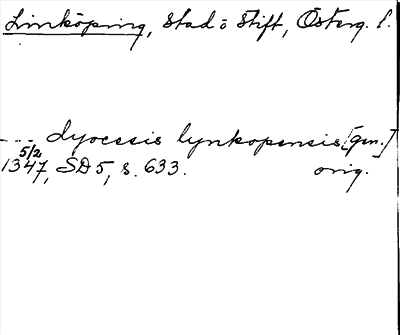 Linköping, Stad o Stift, Österg. l.
--- dyocesis lynkopensis [gen.]
1347 5/2, SD 5, s. 633. orig.